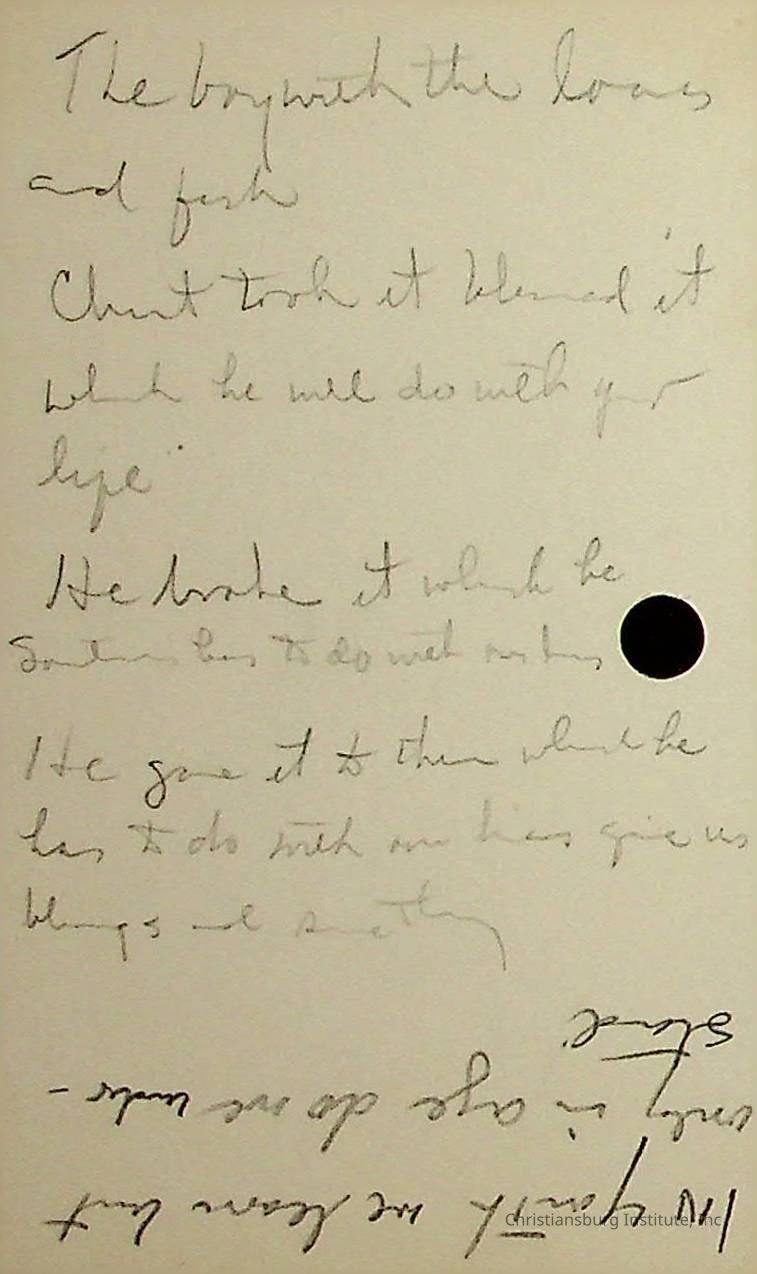 The boy with the loaves
and fish
Christ took it blessed it
which he will do with your
life
He broke it which he
Sometimes has to do with our lives
He gave it to them which he
has to do with our lives give us
blessings and
IN youth we learn but
only in age do we under-
stand
Christiansburg Institute, Inc